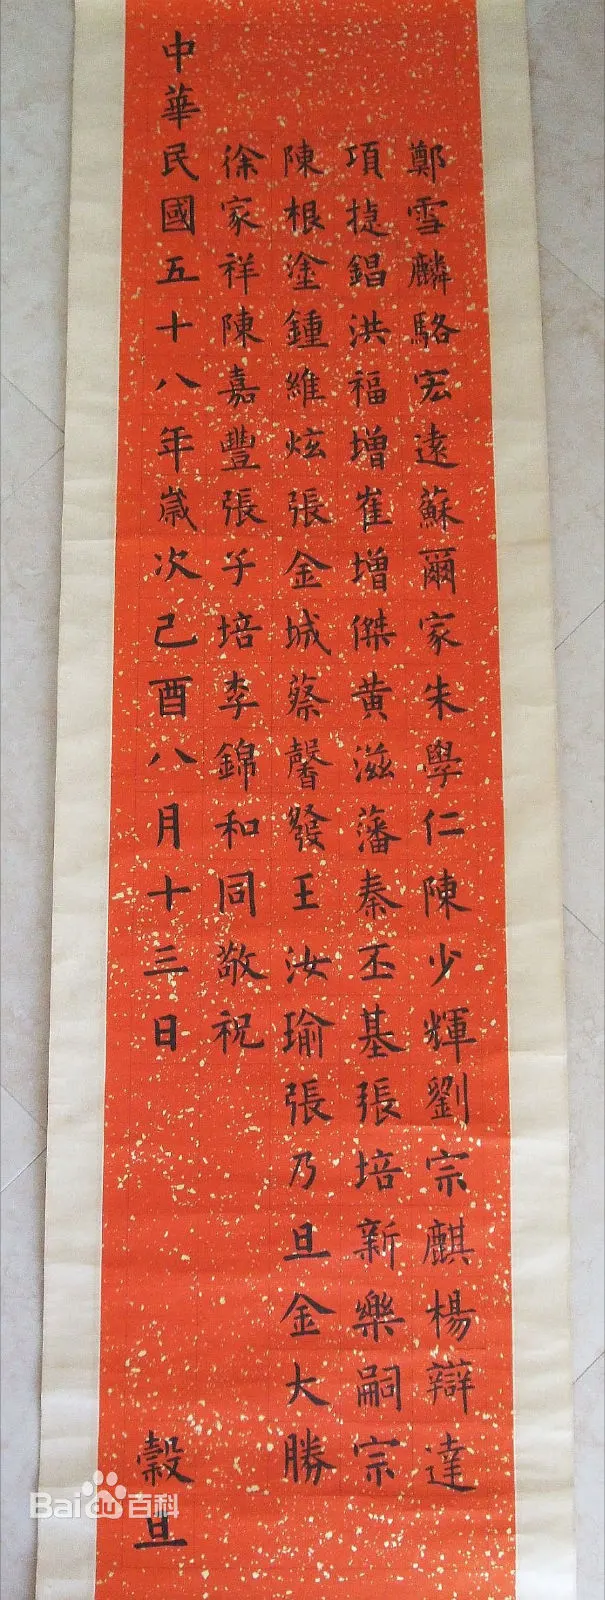 鄭雪麟駱宏遠蘇爾家朱學仁陳少輝劉宗麒楊辯達
項㨗錩洪福增崔增傑黄滋藩秦丕基張培新樂嗣宗
陳根塗鍾維炫張金城蔡馨發王汝瑜張乃旦金大勝
徐家祥陳嘉豐張子培李錦和同敬祝
中華民國五十八年歲次己酉八月十三日 穀旦
Baidu百科